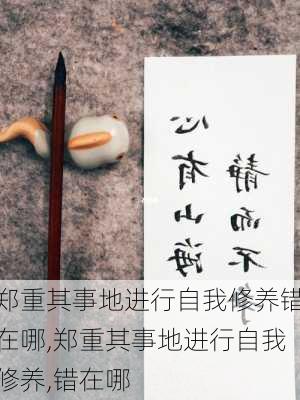 心有山海
静而不
郑重其事地进行自我修养错
在哪,郑重其事地进行自我
修养,错在哪